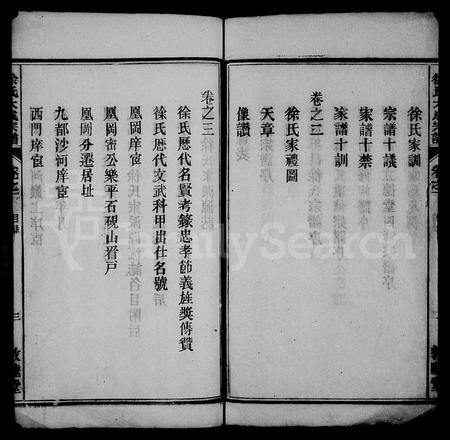 徐氏家訓
宗譜十議
家譜十禁
家譜十訓
卷之二
徐氏家禮圖
天章
像讚
卷之三
徐氏歷代名賢考錄忠孝節義旌獎傳贊
徐氏歷代文武科甲出仕名號
凰岡庠宦
凰岡密公樂平石硯山晉戶
凰岡分遷居址
九都沙河庠宦
西門庠宦
徐氏大成宗譜
三
敦睦堂
FamilySearch